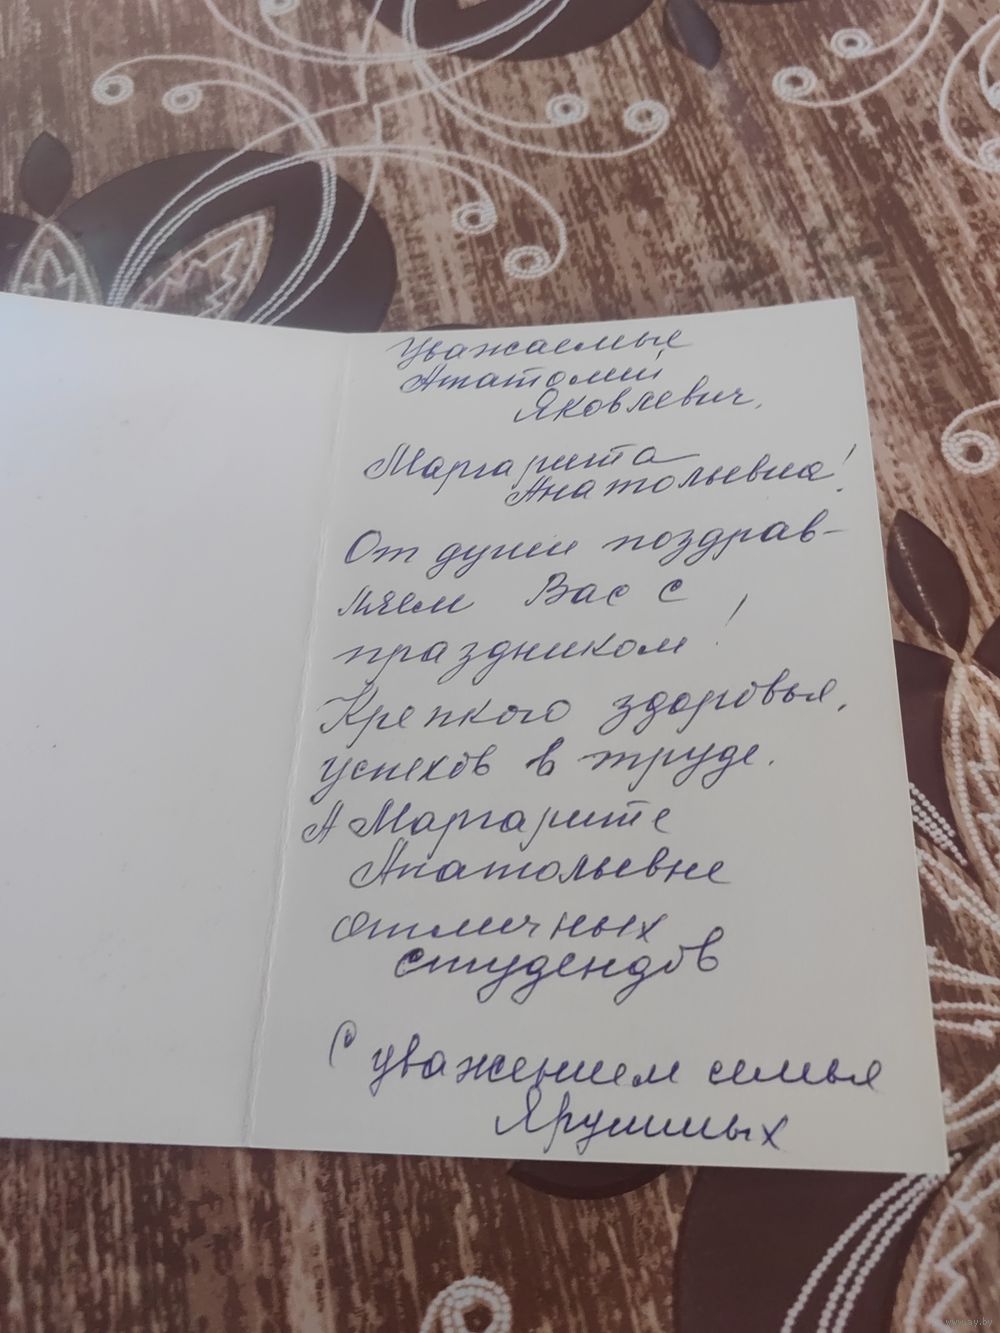 Уважаемые
Анатолий
Яковлевич,
Маргарита
Анатольевна!
От души поздрав-
ляем Вас с
праздником!
Крепкого здоровья,
успехов в труде.
А Маргарите
Анатольевне
отличных
студендов
С уважением семья
www.ay.by